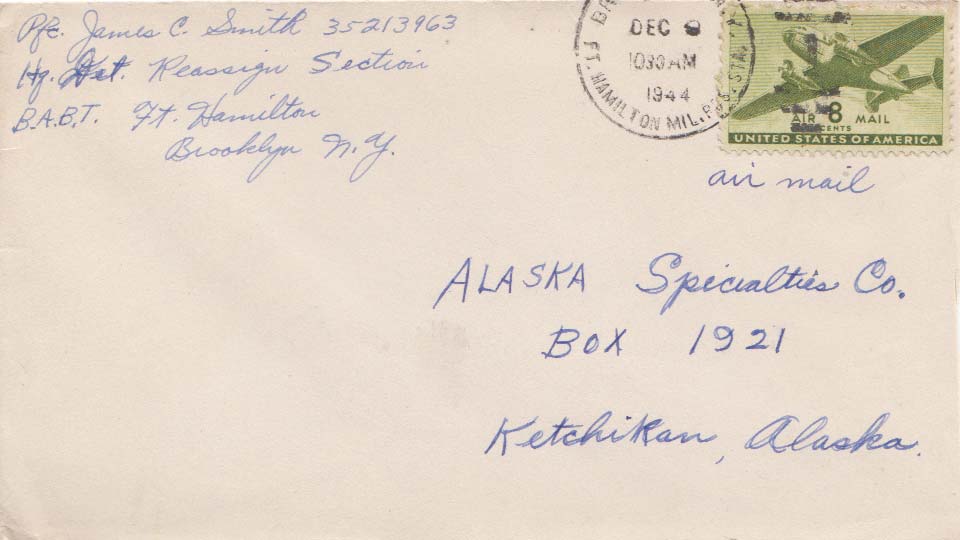 Pfc. James C. Smith 35213963
Hq. Det. Reassign Section
B.A.B.T. Ft. Hamilton
Brooklyn N.Y.
DEC 9
1030 AM
1944
FT. HAMILTON MIL. POS. STA.
AIR 8 MAIL
CENTS
UNITED STATES OF AMERICA
air mail
ALASKA Specialties Co.
BOX 1921
Ketchikan, Alaska.